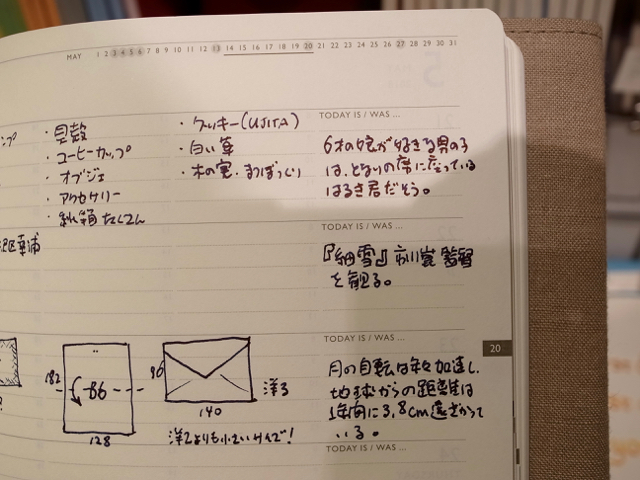 MAY 1 2 3 4 5 6 7 8 9 10 11 12 13 14 15 16 17 18 19 20 21 22 23 24 25 26 27 28 29 30 31
・貝殻
・コーヒーカップ
・オブジェ
・アクセサリー
・紙箱 たくさん
・クッキー(UJITA)
・白い草
・木の実・まつぼっくり
TODAY IS / WAS ...
6才の娘が好きな男の子
は、となりの席に座っている
はるき君だそう。
TODAY IS / WAS ...
『細雪』市川崑 監督
を観る。
182
86
128
96
140
洋3
洋2よりも小さいサイズ!
TODAY IS / WAS ...
月の自転は年々加速し、
地球からの距離は
1年間に3.8cm遠ざかって
いる。
20
TODAY IS / WAS ...